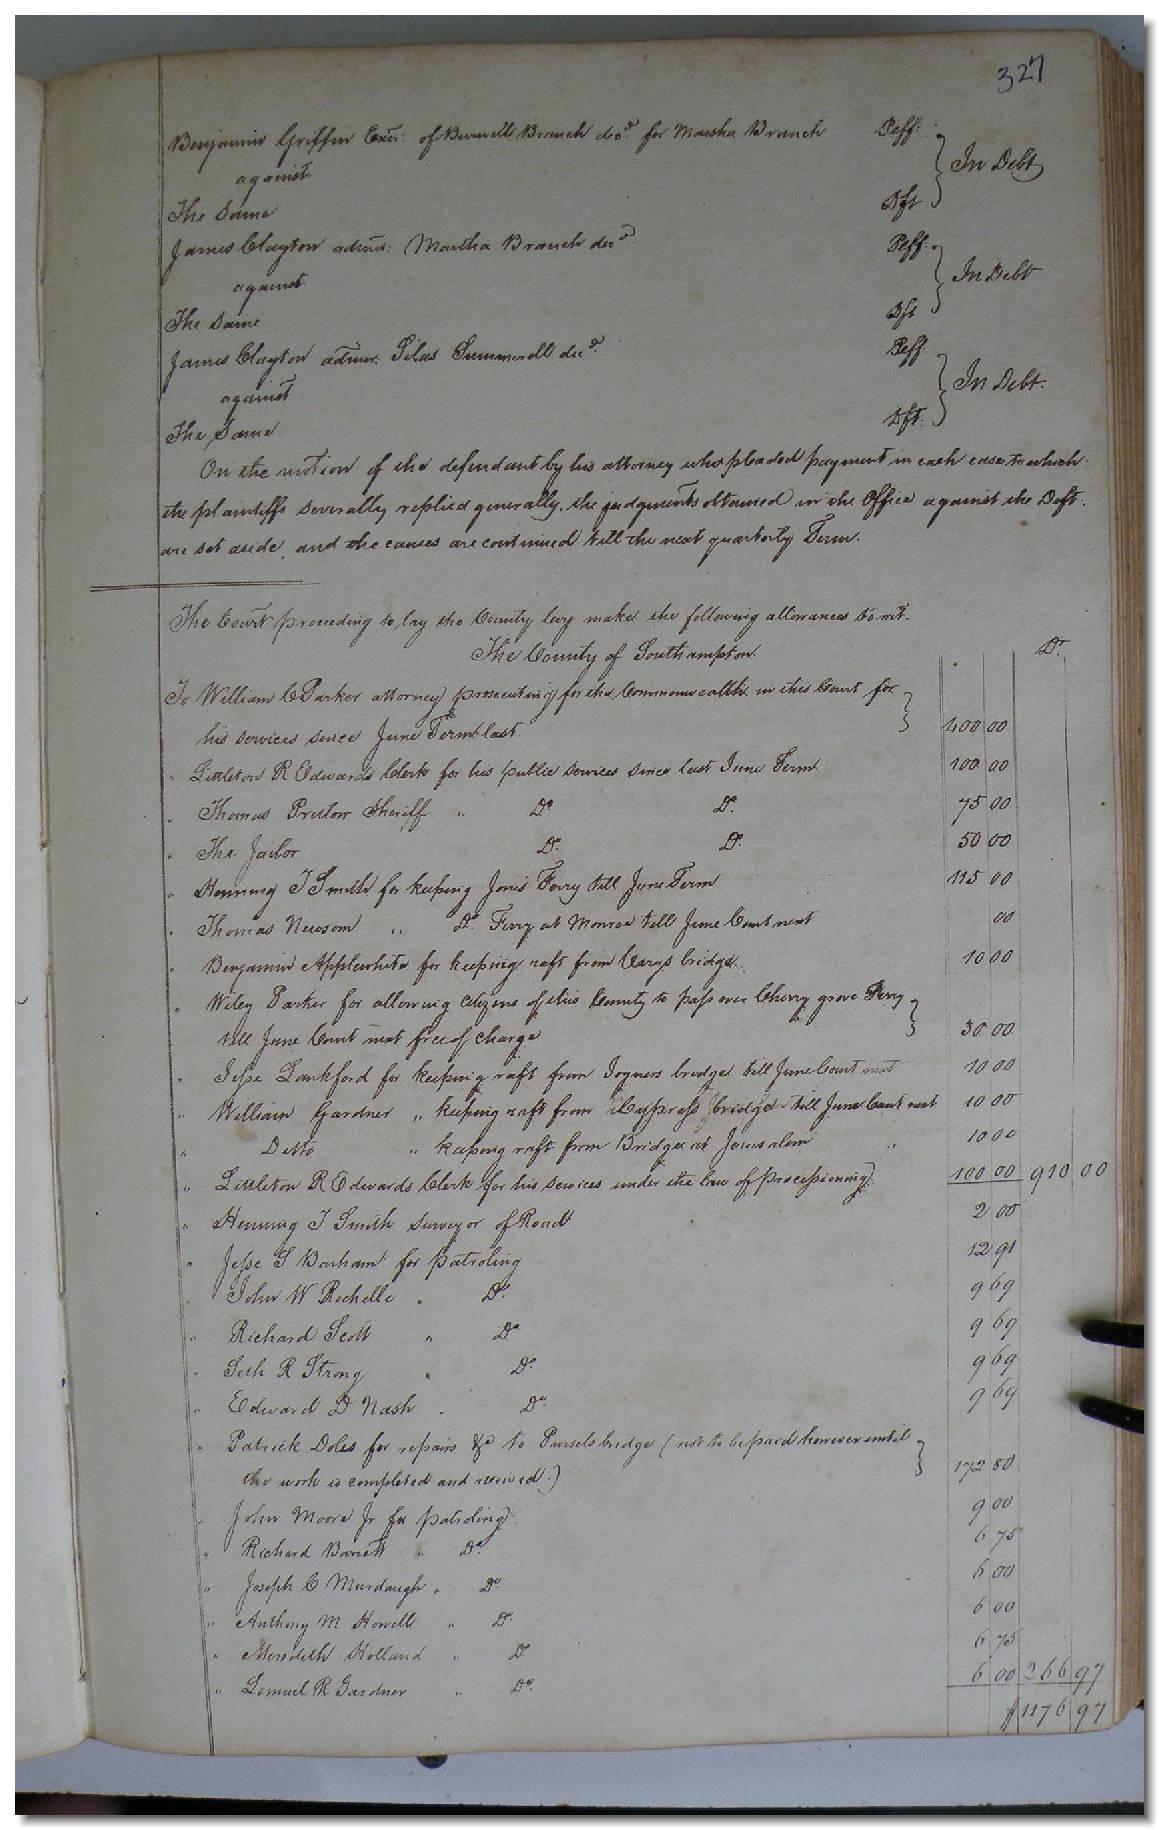 327
Benjamin Griffin Exor: of Burwell Branch decd. for Martha Branch Pltff:
against } In Debt
The Same Dft
James Clayton admr: Martha Branch decd Pltff:
against } In Debt
The Same Dft
James Clayton admor: Silas Summerell decd. Pltff:
against } In Debt.
The Same Dft.
On the motion of the defendant by his attorney who pleaded payment in each case to which
the plaintiffs severally replied generally, the judgments obtained in the Office against the Deft.
are set aside, and the causes are continued till the next quarterly Term.
The Court proceeding to lay the County levy make the following allowances to wit.
The County of Southampton Dr.
To William C Parker attorney prosecuting for the Commonwealth in this Court for }
his services since June Term last. 100 00
" Littleton R Edwards Clerk for his public services since last June Term 100 00
" Thomas Pretlow Sheriff " Do. Do. 75 00
" The Jailor Do. Do. 50 00
" Henning T Smith for keeping Jones Ferry till June Term 115 00
" Thomas Newsom " Do. Ferry at Monroe till June Court next 00
" Benjamin Applewhite for keeping raft from Carys bridge. 10 00
" Wiley Parker for allowing citizens of this County to pass over Cherry grove Ferry }
till June Court next free of charge 30 00
" Jesse Lankford for keeping raft from Joyners bridge till June Court next 10 00
" William Gardner " keeping raft from Cypress bridge till June Court next 10 00
" Ditto " keeping raft from Bridge at Jerusalem " 10 00
" Littleton R Edwards Clerk for his services under the law of processioning 100 00 910 00
" Henning T Smith Surveyor of Road 2 00
" Jesse S Barham for patroling 12 91
" John W Rochelle " Do. 9 69
" Richard Scott " Do 9 69
" Seth R Strong " Do. 9 69
" Edward D Nash " Do. 9 69
" Patrick Doles for repairs &c to Pursels bridge (not to be paid however until }
the work is completed and received.) 172 80
" John Moore Jr for patroling 9 00
" Richard Barrett " Do. 6 75
" Joseph C Murdaugh " Do. 6 00
" Anthony M Howell " Do. 6 00
" Meredith Holland " Do 6 75
" Lemuel R Gardner " Do. 6 00 266 97
$ 1176 97